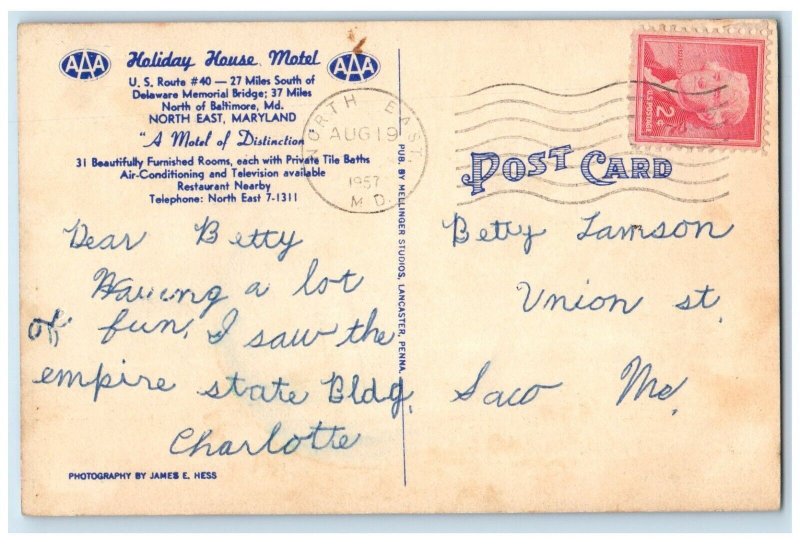 AAA Holiday House Motel AAA
U. S. Route #40 — 27 Miles South of
Delaware Memorial Bridge; 37 Miles
North of Baltimore, Md.
NORTH EAST, MARYLAND
"A Motel of Distinction
31 Beautifully Furnished Rooms, each with Private Tile Baths
Air-Conditioning and Television available
Restaurant Nearby
Telephone: North East 7-1311
NORTH EAST,
AUG 19
1957
MD.
U.S. POSTAGE
2¢
POST CARD
PUB. BY MELLINGER STUDIOS, LANCASTER, PENNA.
Dear Betty
Having a lot
of fun. I saw the
empire state Bldg.
Charlotte
Betty Lamson
Union st.
Saco Me.
PHOTOGRAPHY BY JAMES E. HESS